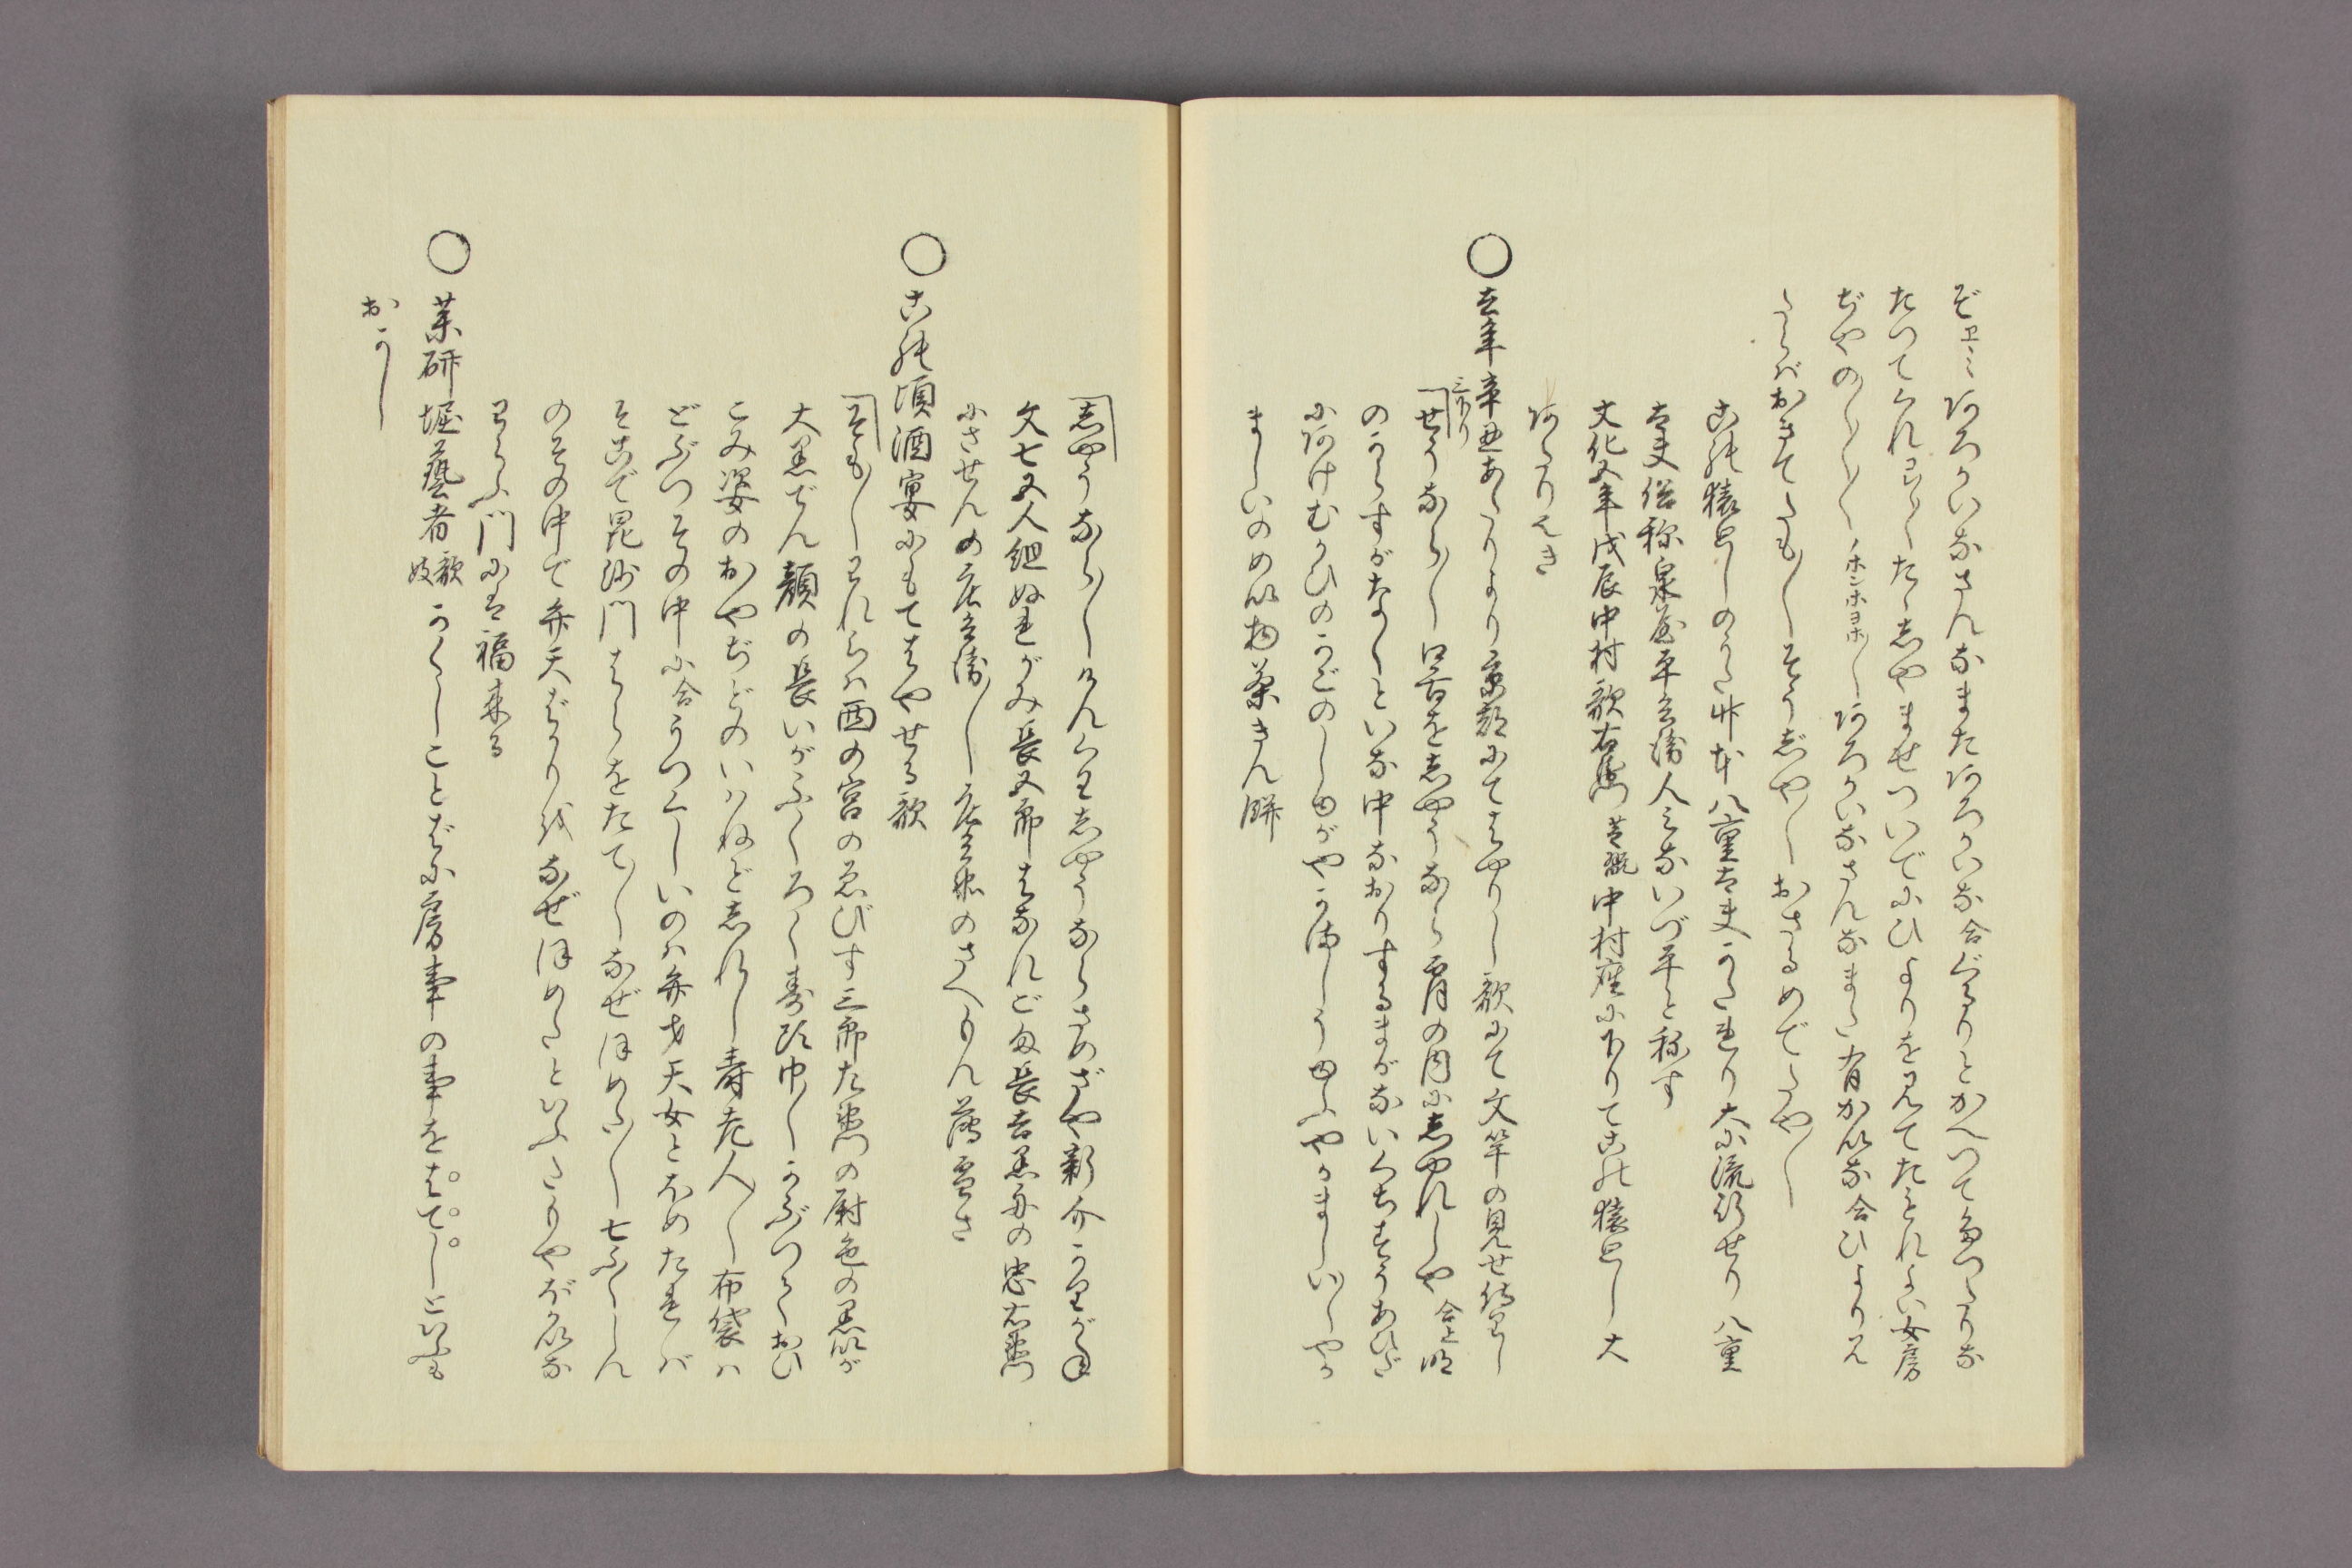 ぞエヽミ阿ろかいなさんなまた阿ろかいな合ぐるりとかへつて
たつてくれろ〳〵たゝしやませついでにひよりを見てたもれよい女房
ぢやの〳〵〳〵ホンホヨホ〳〵阿ろかいなさんなまた有かいな合ひより見
たらばおきてたも〳〵そうぢや〳〵おさるめでたや〳〵
この猿廻しのうた竹本八重太夫かたれり大に流行せり八重
太夫俗称泉屋平兵衛人みないづ平と称す
文化五年戊辰中村歌右衛門芝翫中村座に下りてこの猿廻し大
阿たりせき
○去年辛丑あたりより京都にてはやりし歌にて文竿の見せ
三下り
せうなら〳〵口舌をしやうなら宵の内にしやれしや合上
のうらすがなくといな中なおりするまがないくちせうあひだ
に阿けむかひのかごのし
ましいのめい物粟きん餅
しやうなら〳〵けんくわしやうならさめざや新介かりがね
文七五人組ぬれがみ長五郎はなれごま長吉黒舟の忠右衛門
にさせんの庄兵衛〳〵庄兵衛のさへもん薄雪さ
○この頃酒宴にもてはやせる歌
そも〳〵われらは西の宮のゑびす三郎左衛門の尉色の黒いが
大黒でん顔の長いがふくろく寿頭巾〳〵かぶつておひ
こみ姿のおやぢどのいはねどしれし寿老人〳〵布袋は
どぶつその中に合うつくしいのは弁才天女とほめたれば
そこで毘沙門はらをたて〳〵なぜほめた〳〵七ふくじん
のその中で弁天ばかりをなぜほめたといふたりやばかいな
わらふ門には福来る
○薬研堀藝者歌妓かくしことばに房事の事をはてしといふも
おかし